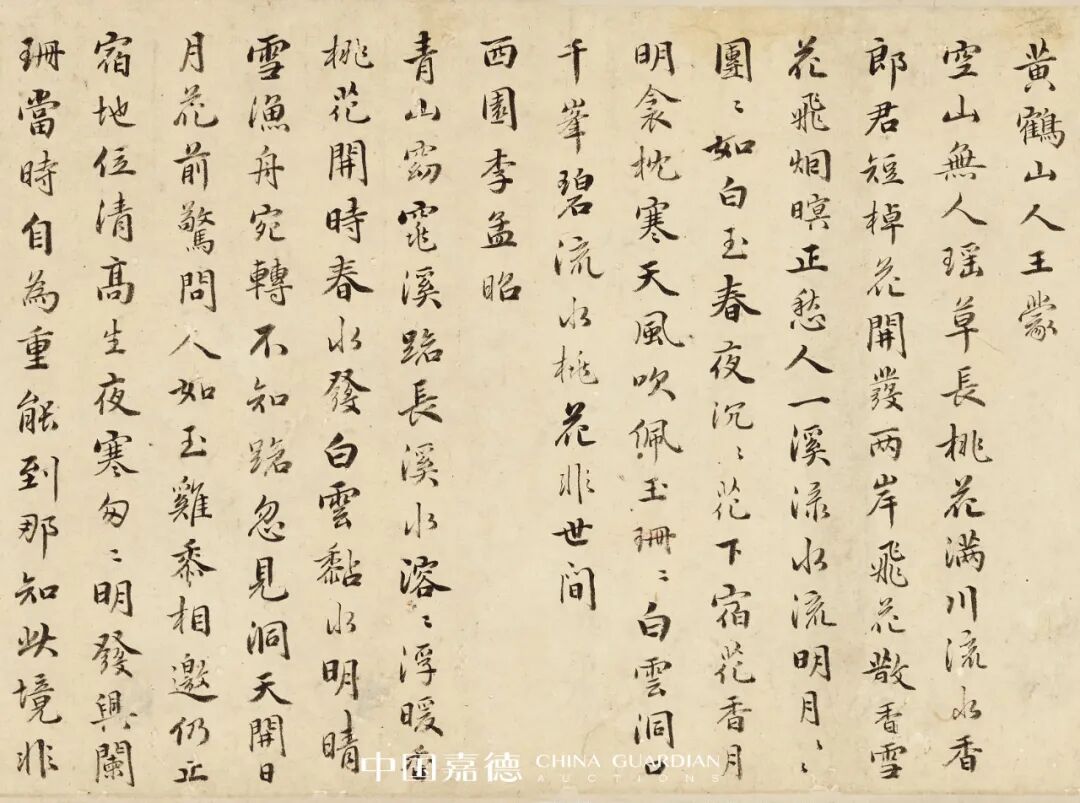 黃鶴山人王蒙
空山無人瑶草長桃花满川流水香
郎君短棹花開發两岸飛花散香雪
花飛烟暝正愁人一溪渌水流明月〻
團〻如白玉春夜沉〻花下宿花香月
明衾枕寒天風吹佩玉珊〻白雲洞口
千峯碧流水桃花非世间
西園李孟昭
青山窈窕溪路長溪水溶〻浮暖香
桃花開時春水發白雲黏水明晴
雪漁舟宛轉不知路忽見洞天開日
月花前驚問人如玉雞黍相邀仍正
宿地位清髙生夜寒匆〻明發興闌
珊當時自為重能到那知此境非
中国嘉德 CHINA GUARDIAN
AUCTIONS